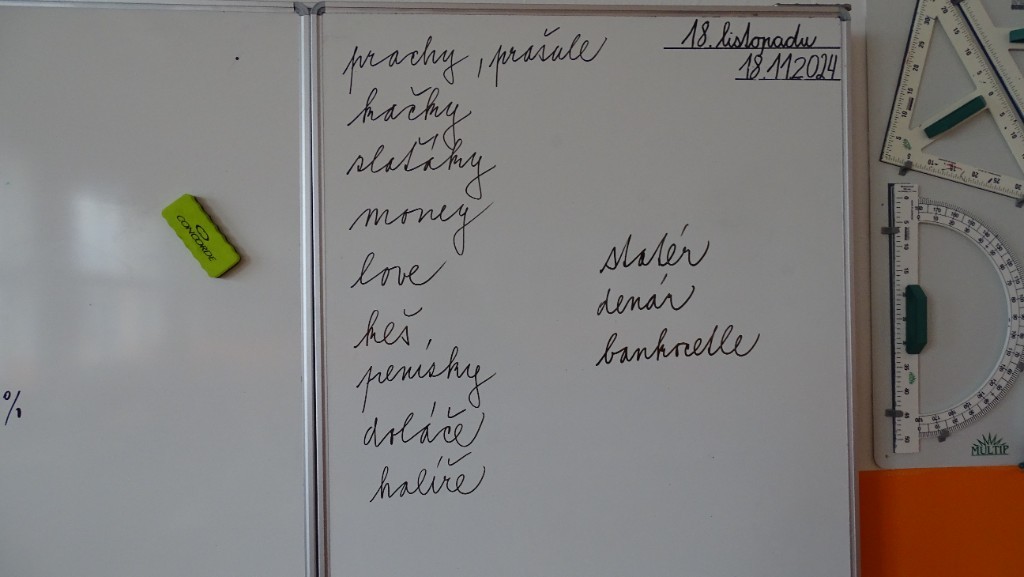 18. listopadu
18.11.2024
prachy, prašule
kačky
slaťáky
money
love
keš,
penísky
doláče
halíře
statér
denár
bankocetle
CONCORDE
%
MULTIP